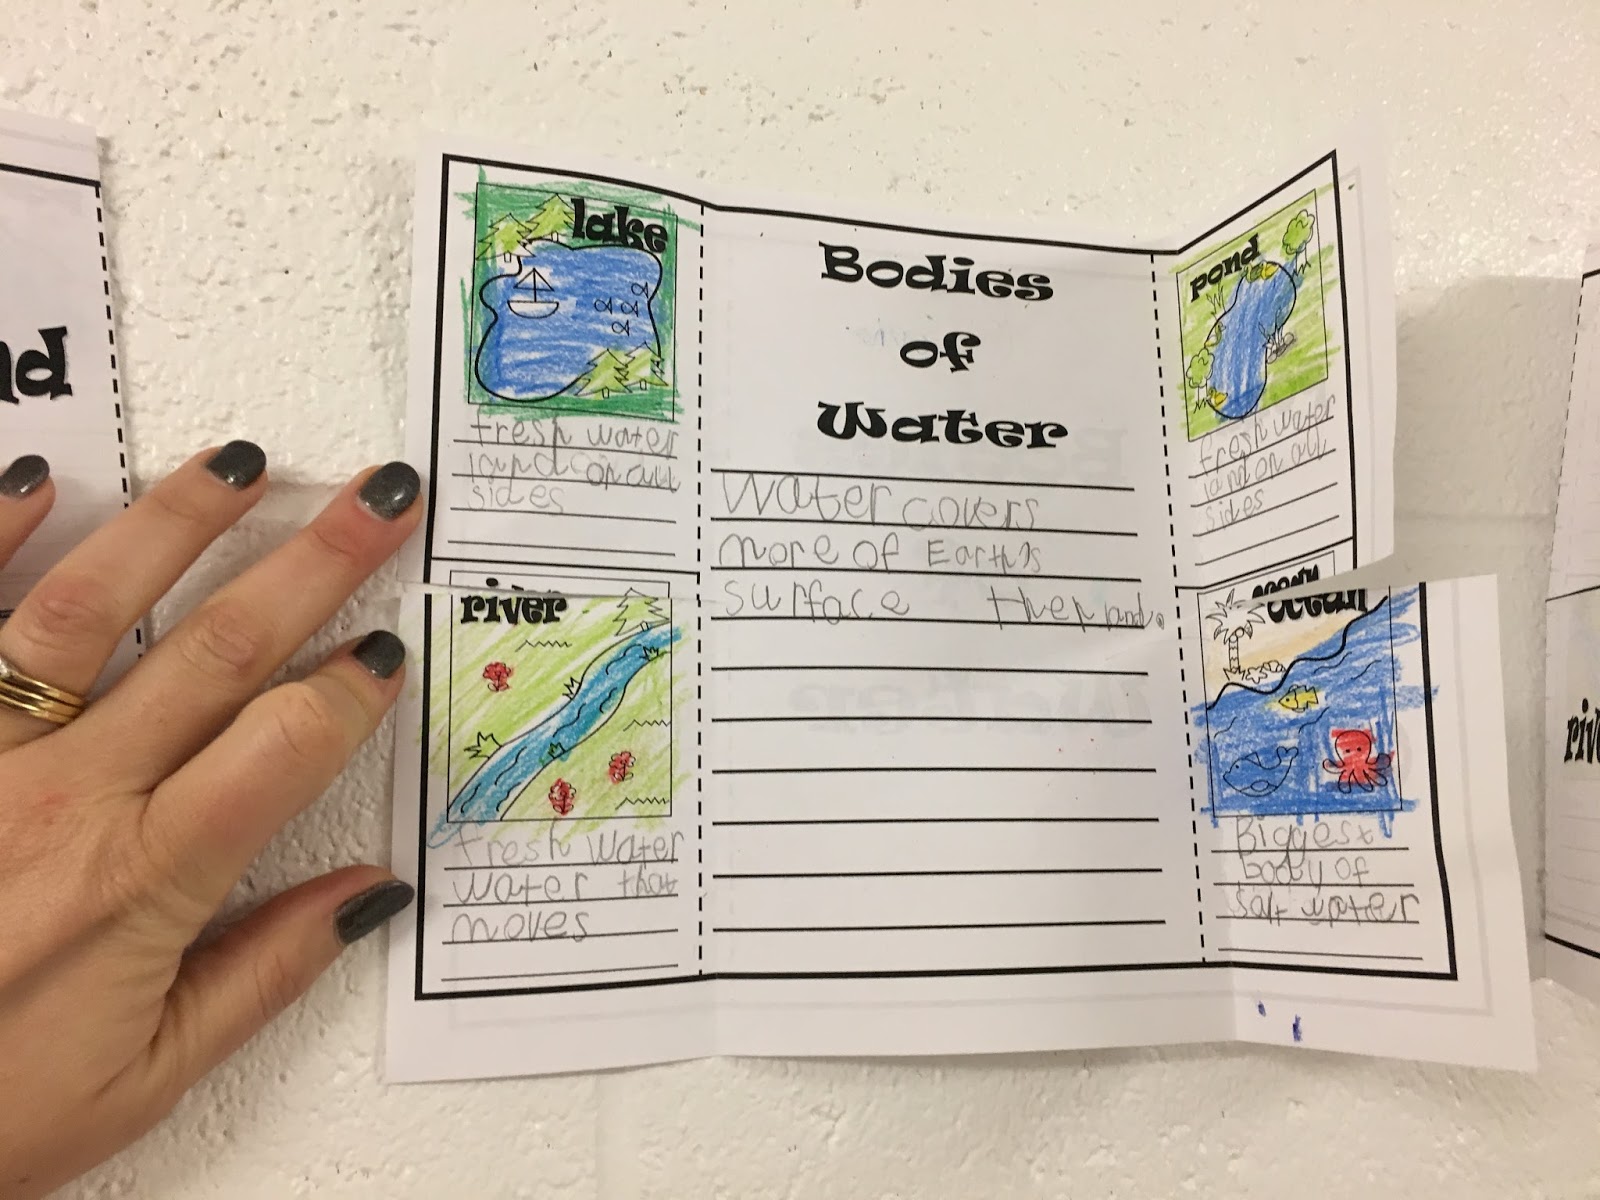 nd
lake
fresh water
land on all
sides
river
fresh water
water that
moves
Bodies
of
Water
Water covers
more of Earth's
surface then land.
pond
fresh water
land on all
sides
ocean
Biggest
body of
salt water
riv